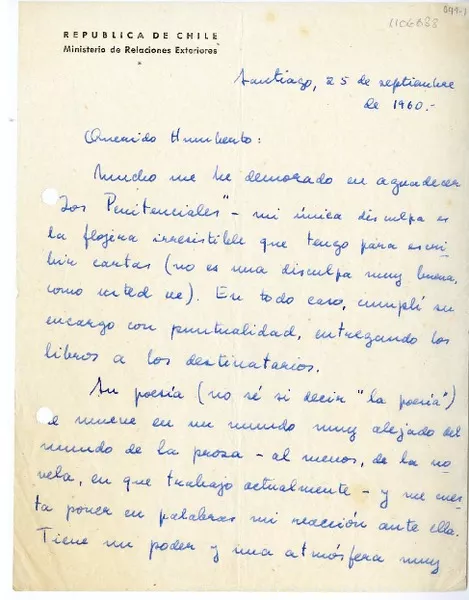 REPUBLICA DE CHILE
Ministerio de Relaciones Exteriores
Santiago, 25 de septiembre
de 1960.-
Querido Humberto:
Mucho me he demorado en agradecer
"Los Penitenciales" - mi única disculpa es
la flojera irresistible que tengo para escri-
bir cartas (no es una disculpa muy buena,
como usted ve). En todo caso, cumplí su
encargo con puntualidad, entregando los
libros a los destinatarios.
Su poesía (no sé si decir "la poesía")
se mueve en un mundo muy alejado del
mundo de la prosa - al menos, de la no-
vela, en que trabajo actualmente - y me cues-
ta poner en palabras mi reacción ante ella.
Tiene un poder y una atmósfera muy